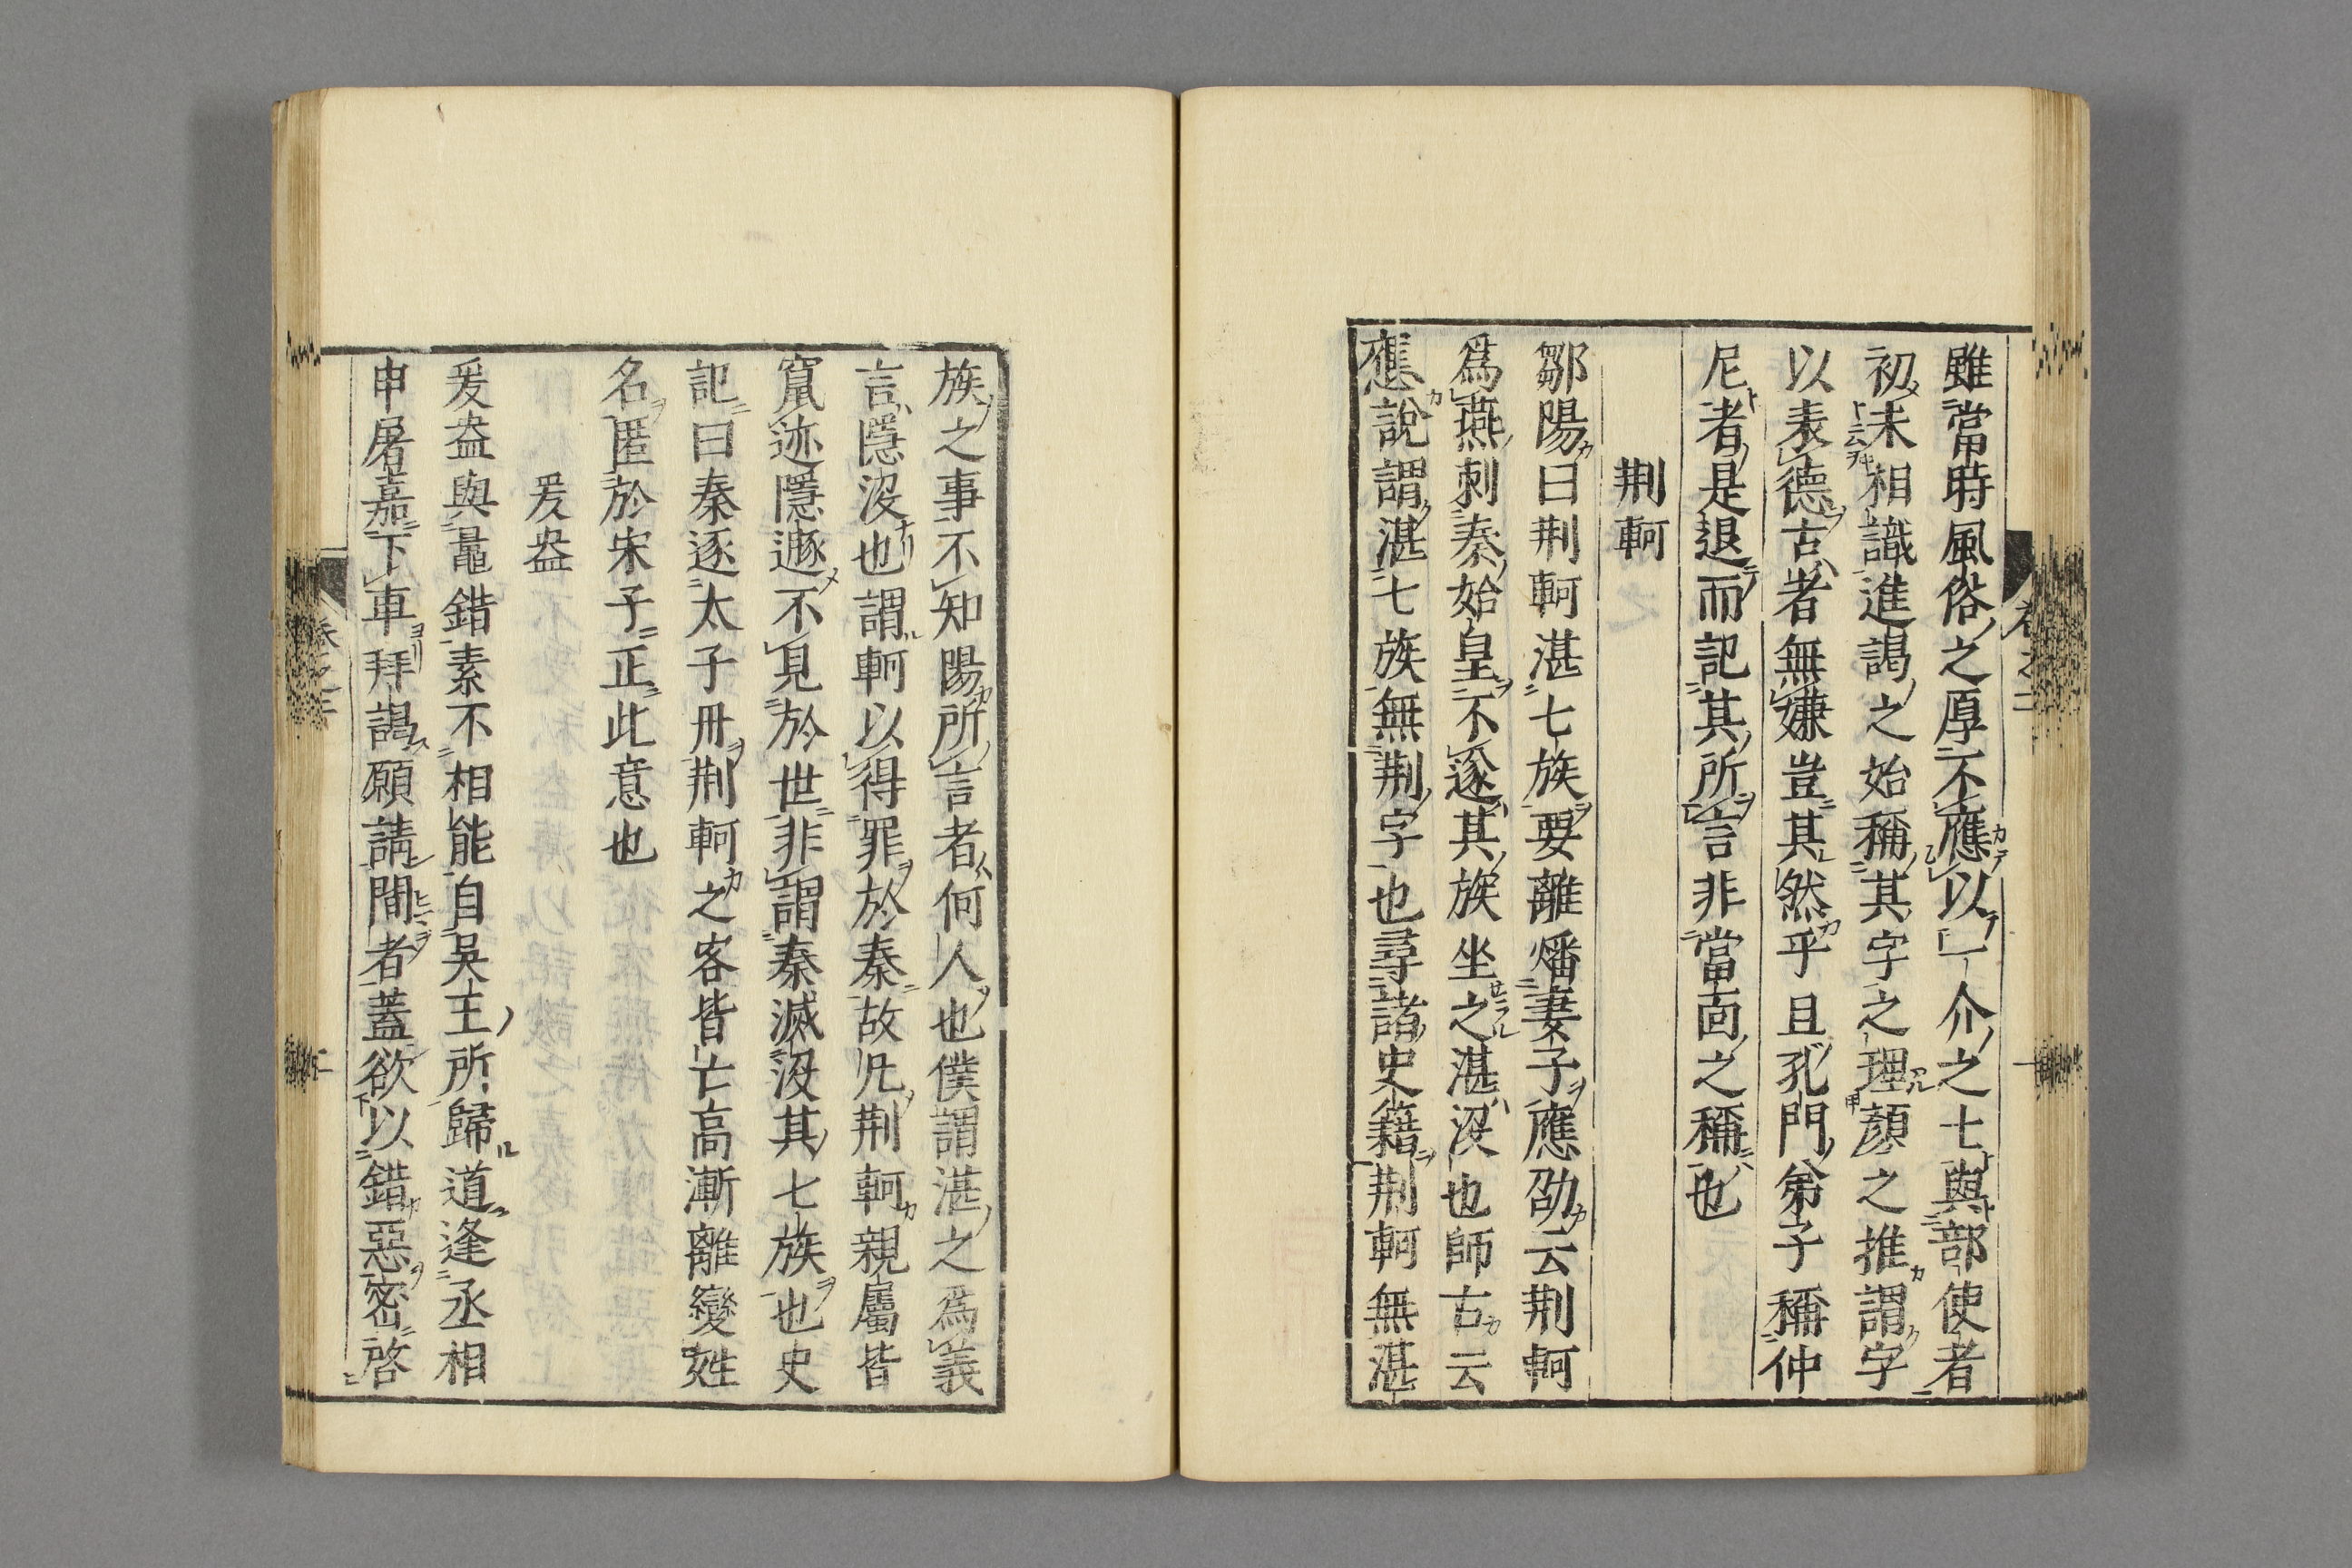 雖當時風俗之厚不應以一介之士與部使者
初未相識進謁之始稱其字之理顏之推謂字
以表德古者無嫌豈其然乎且孔門弟子稱仲
尼者是退而記其所言非當面之稱也
荆軻
鄒陽曰荆軻湛七族要離燔妻子應劭云荆軻
爲燕刺秦始皇不遂其族坐之湛沒也師古云
應說謂湛七族無荆字也尋諸史籍荆軻無湛
族之事不知陽所言者何人也僕謂湛之爲義
言隱沒也謂軻以得罪於秦故凡荆軻親屬皆
竄迹隱遯不見於世非謂秦滅沒其七族也史
記曰秦逐太子丹荆軻之客皆亡高漸離變姓
名匿於宋子正此意也
爰盎
爰盎與鼂錯素不相能自吳王所歸道逢丞相
申屠嘉下車拜謁願請間者蓋欲以錯惡密啓